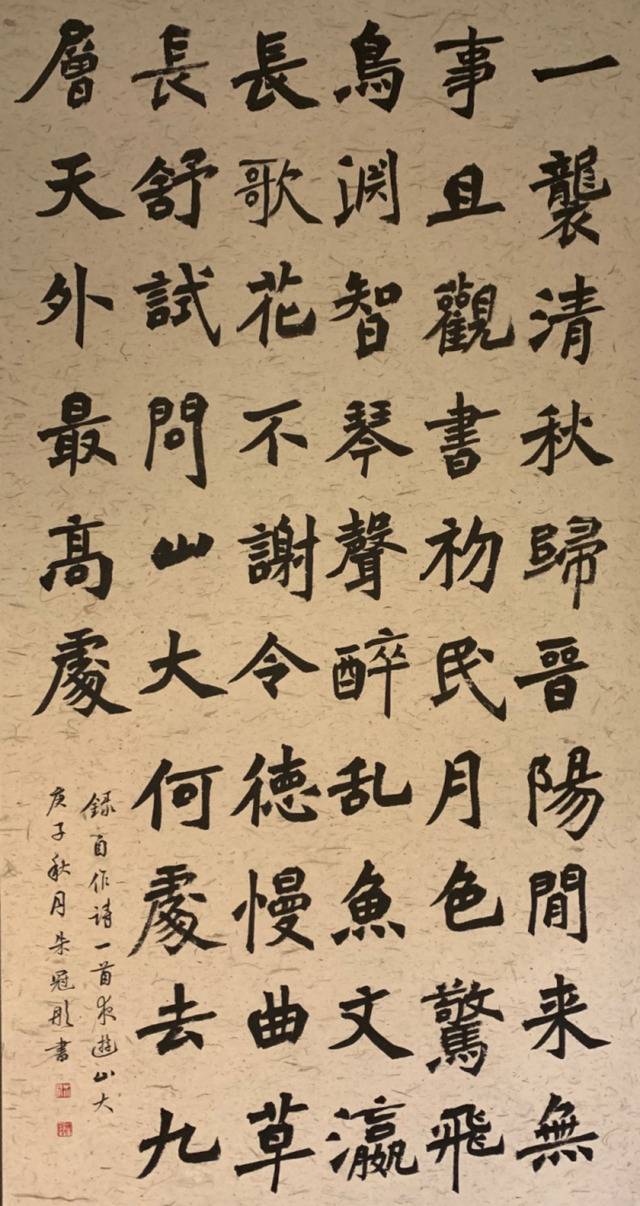 一襲清秋歸晉陽閒来無
事且觀書初民月色驚飛
鳥渊智琴聲醉乱魚文瀛
長歌花不謝令德慢曲草
長舒試問山大何處去九
層天外最高處
録自作詩一首夜遊山大
庚子秋月朱冠彤書